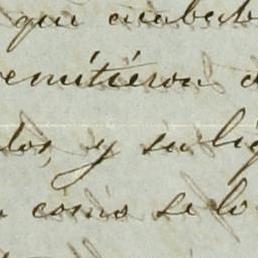 que acabab
emitieron
dos, y su li
como se lo